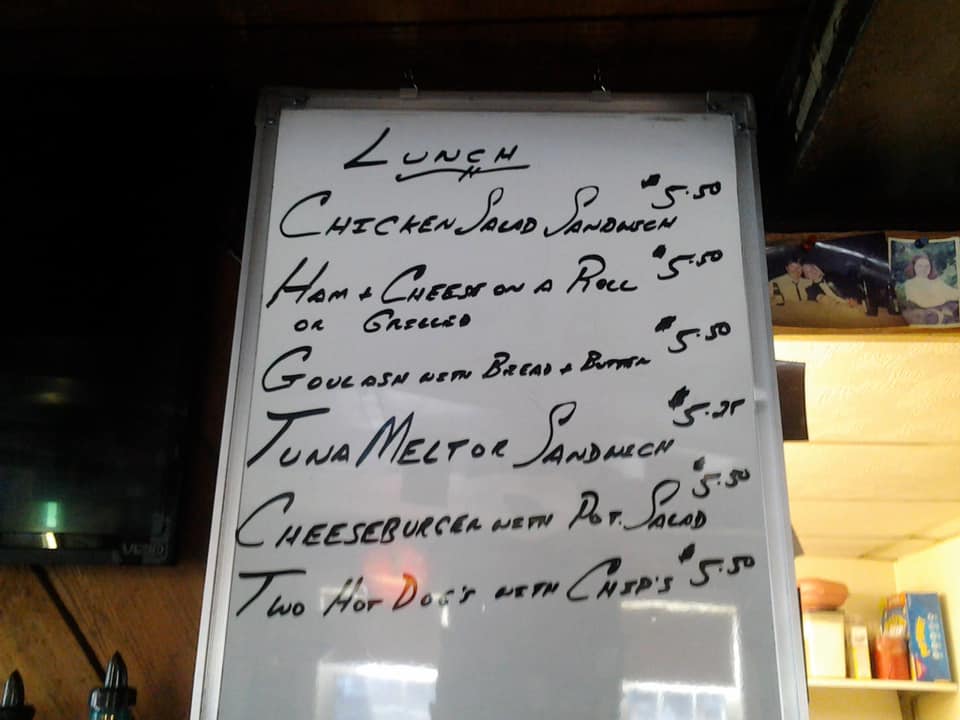 LUNCH
CHICKEN SALAD SANDWICH $5.50
HAM + CHEESE ON A ROLL $5.50
OR GRILLED
GOULASH WITH BREAD + BUTTER $5.50
TUNA MELT OR SANDWICH $5.25
CHEESEBURGER WITH POT. SALAD $5.50
TWO HOT DOG'S WITH CHIP'S $5.50
VIZIO